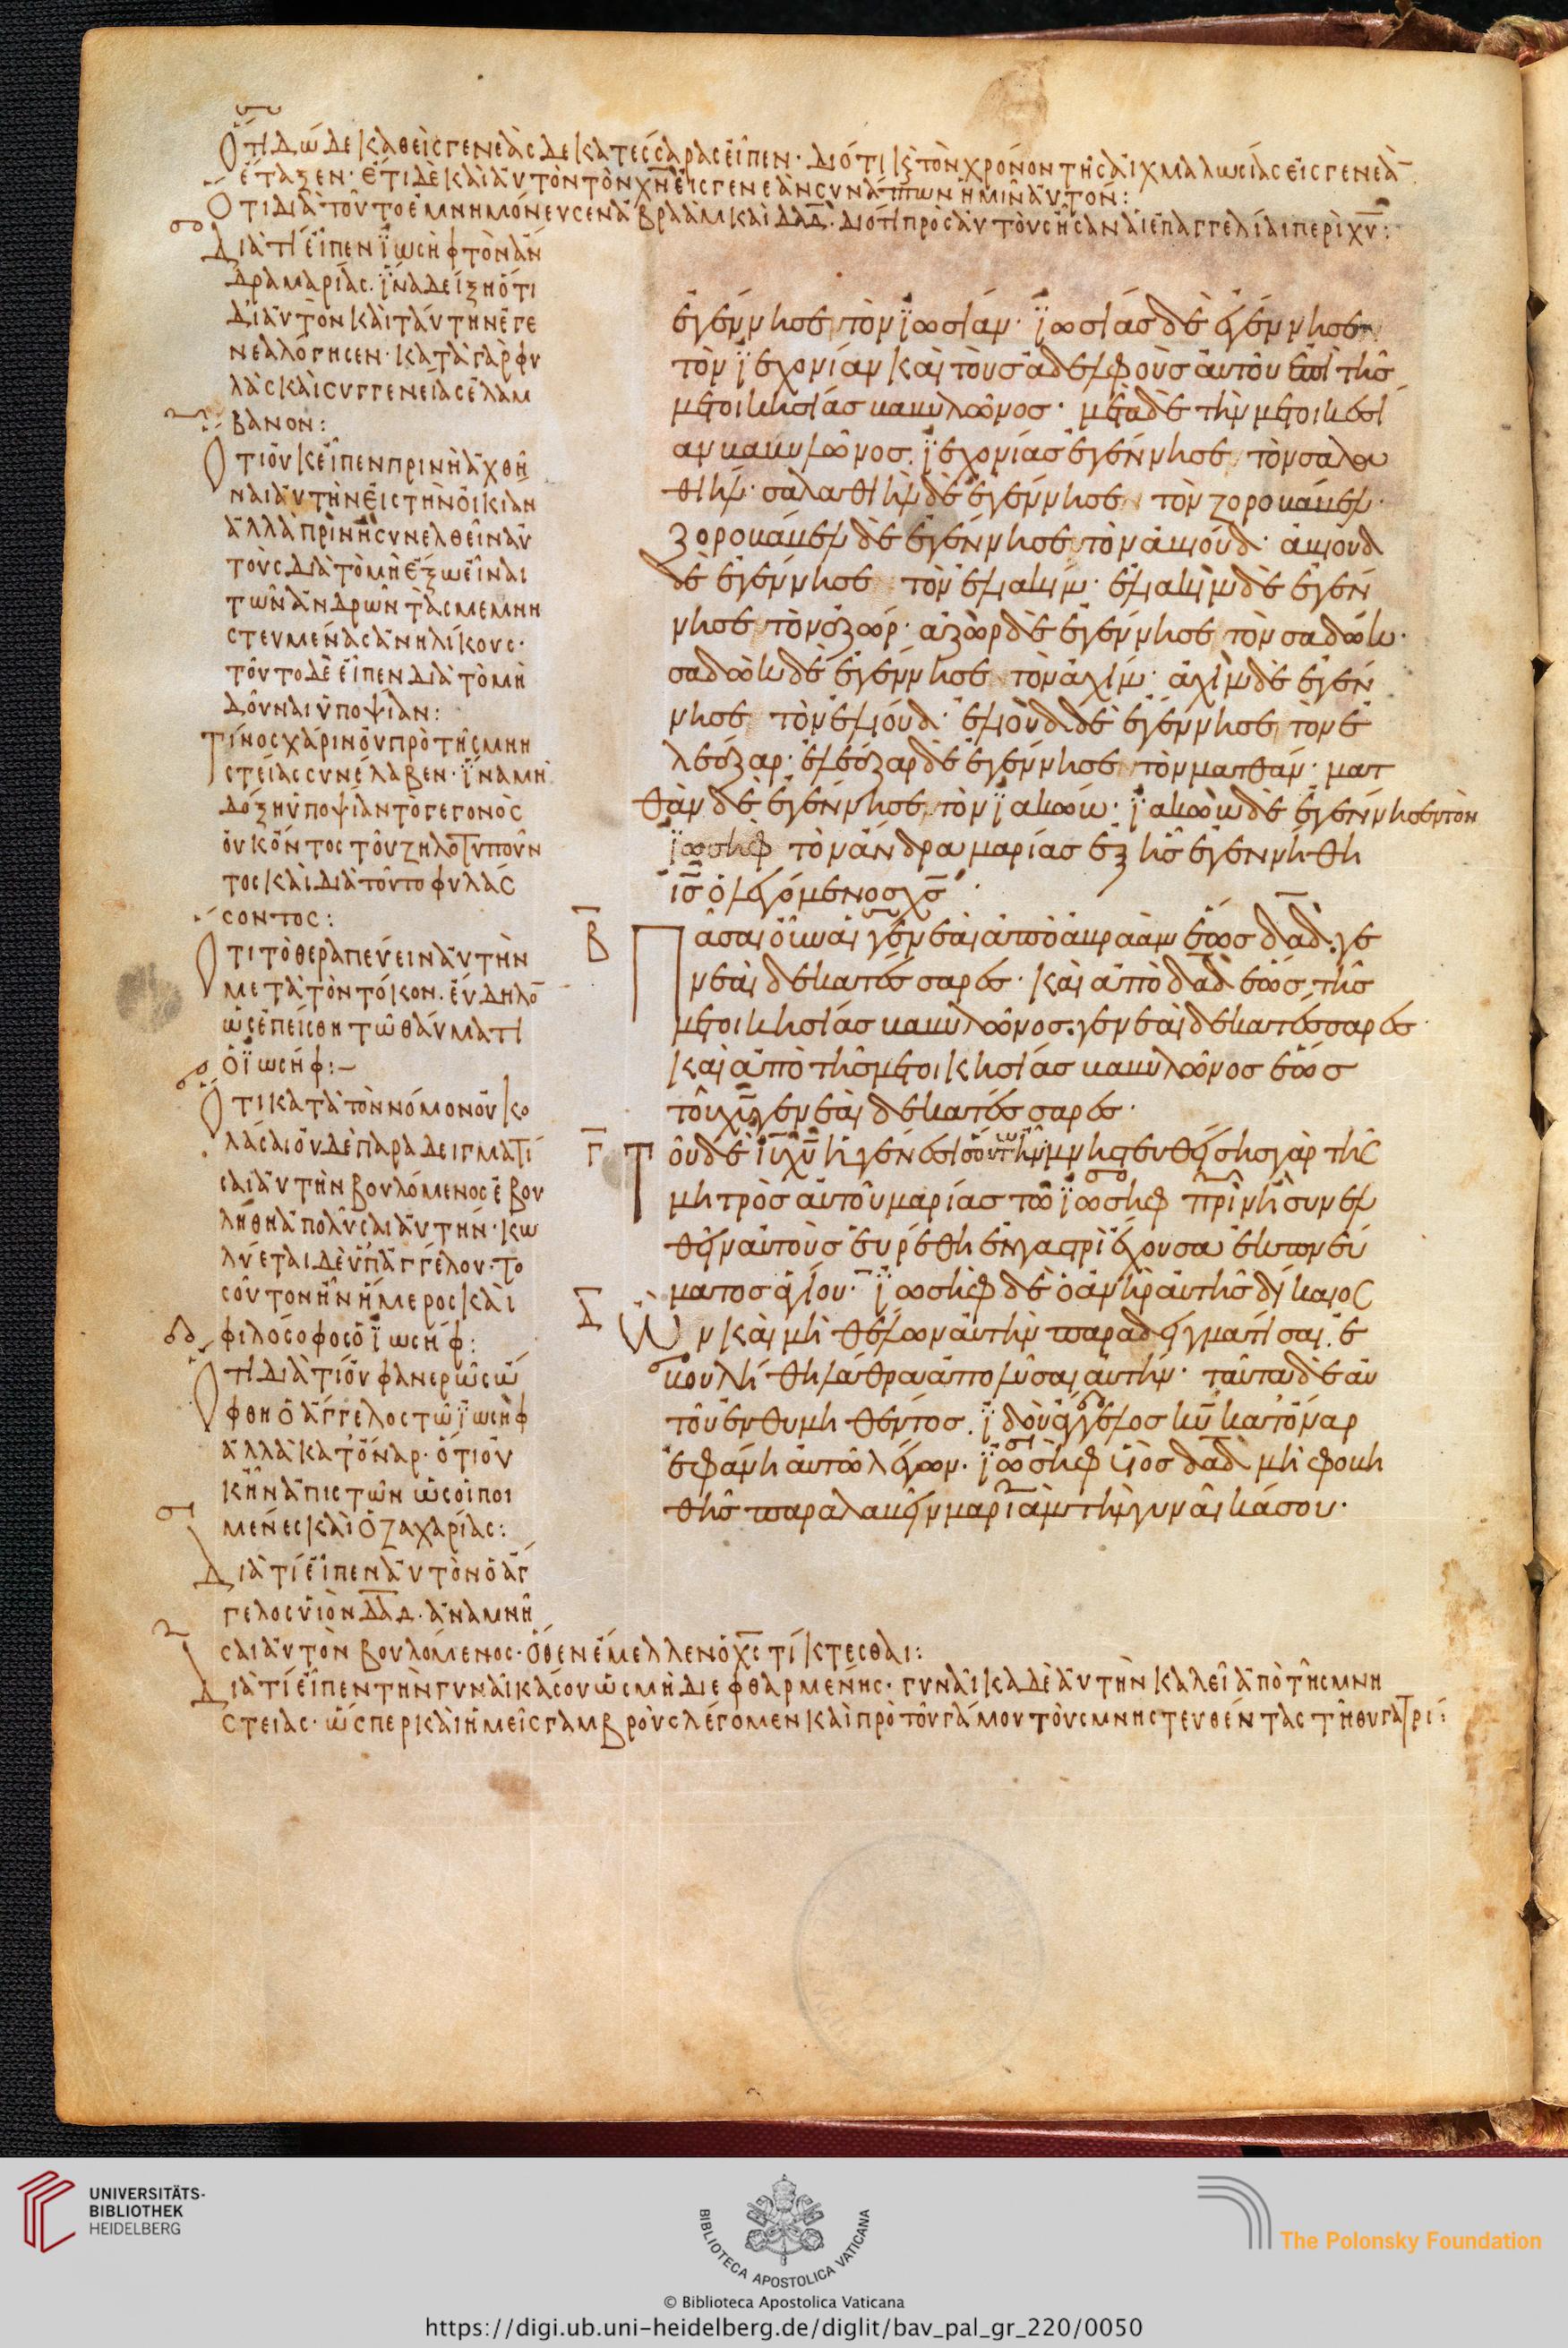 Ὅτι δώδεκα θεὶς γενεὰς δεκατέσσαρας εἶπεν· διότι κ(αὶ) τὸν χρόνον τῆς αἰχμαλωσίας εἰς γενεὰ̅
ἔταξεν· ἔτι δὲ καὶ αὐτὸν τὸν χ̅ν̅ εἰς γενεὰν συνάπτων ἡμῖν αὐτόν:
Ὅτι διὰ τοῦτο ἐμνημόνευσεν ἀβραὰμ καὶ δ̅α̅δ̅· διότι πρὸς αὐτοὺς ἦσαν αἱ ἐπαγγελίαι περὶ χ̅υ̅:
Διατί εἶπεν ϊωσὴφ τὸν ἄν
δρα μαρίας· ἵνα δείξη ὅτι
δι' αὐτὸν καὶ ταύτην ἐγε
νεαλόγησεν· κατὰ γὰρ φυ
λὰς καὶ συγγενείας ἐλάμ
βανον:
Ὅτι οὐκ εἶπεν πρὶν ἢ ἀχθῆ
ναι αὐτὴν εἰς τὴν οἰκίαν
ἀλλὰ πρὶν ἢ συνελθεῖν αὐ
τοὺς διὰ τὸ μὴ ἔξω εἶναι
τῶν ἀνδρῶν τὰς μεμνη
στευμένας ἀνηλίκους·
τοῦτο δὲ εἶπεν διὰ τὸ μὴ
δοῦναι ὑποψίαν:
Τίνος χάριν οὐ πρὸ τῆς μνη
στείας συνέλαβεν· ἵνα μὴ
δόξη ὑποψίαν τὸ γεγονὸς
οὐκ ὄντος τοῦ ζηλοτυποῦν
τος καὶ διὰ τοῦτο φυλάσ
σοντος:
Ὅτι τὸ θεραπεύειν αὐτὴν
μετὰ τὸν τόκον· εὔδηλο̅
ὡς ἐπείσθη τῶ θαύματι
ὁ ϊωσήφ:
Ὅτι κατὰ τὸν νόμον οὐ κο
λάσαι οὐδὲ παραδειγματί
σαι αὐτὴν βουλόμενος ἐβου
λήθη ἀπολῦσαι αὐτήν· κω
λύεται δὲ ὑπ' ἀγγέλου· το
σοῦτον ἦν ἥμερος καὶ
φιλόσοφος ὁ ϊωσήφ:
Ὅτι διατί οὐ φανερῶς ὤ
φθη ὁ ἄγγελος τῶ ϊωσὴφ
ἀλλὰ κατ' ὄναρ· ὅτι οὐ
κ ἦν ἄπιστων ὡς οἱ ποι
μένες καὶ ὁ ζαχαρίας:
Διατί εἶπεν αὐτὸν ὁ ἄγ
γελος υἱὸν δ̅α̅δ̅· ἀναμνῆ
σαι αὐτὸν βουλόμενος· ὅθεν ἔμελλεν ὁ χ̅ς̅ τίκτεσθαι:
Διατί εἶπεν τὴν γυναῖκά σου ὡς μὴ διεφθαρμένης· γυναῖκα δὲ αὐτὴν καλεῖ ἀπὸ τῆς μνη
στείας· ὥσπερ καὶ ἡμεῖς γαμβροὺς λέγομεν καὶ πρὸ τοῦ γάμου τοὺς μνηστευθέντας τῆ θυγατρί:
ἐγέννησε τὸν ϊωσίαν· ϊωσίας δὲ ἐγέννησε
τὸν ϊεχονίαν καὶ τοὺς ἀδελφοὺς αὐτοῦ ἐπὶ τῆς
μετοικησίας βαβυλῶνος· μετὰ δὲ τὴν μετοικεσί
αν βαβυλῶνος· ϊεχονίας ἐγέννησε τὸν σαλα
θιήλ· σαλαθιὴλ δὲ ἐγέννησε τὸν ζοροβάβελ·
ζοροβάβελ δὲ ἐγέννησε τὸν ἀβιούδ· ἀβιοὺδ
δὲ ἐγέννησε τὸν ἐλιακίμ· ἐλιακὶμ δὲ ἐγέν
νησε τὸν ἀζώρ· ἀζὼρ δὲ ἐγέννησε τὸν σαδώκ·
σαδὼκ δὲ ἐγέννησε τὸν ἀχίμ· ἀχὶμ δὲ ἐγέν
νησε τὸν ἐλιούδ· ἐλιοὺδ δὲ ἐγέννησε τὸν ἐ
λεάζαρ· ἐλεάζαρ δὲ ἐγέννησε τὸν ματθάν· ματ
θὰν δὲ ἐγέννησε τὸν ϊακώβ· ϊακὼβ δὲ ἐγέννησε τὸν
ϊωσὴφ τὸν ἄνδρα μαρίας ἐξ ἧς ἐγεννήθη
ι̅ς̅ ὁ λεγόμενος χ̅ς̅·
Β Πᾶσαι οὖν αἱ γενεαὶ ἀπὸ ἀβραὰμ ἕως δ̅α̅δ̅· γε
νεαὶ δεκατέσσαρες· καὶ ἀπὸ δ̅α̅δ̅ ἕως τῆς
μετοικησίας βαβυλῶνος· γενεαὶ δεκατέσσαρες·
καὶ ἀπὸ τῆς μετοικησίας βαβυλῶνος ἕως
τοῦ χ̅υ̅ γενεαὶ δεκατέσσαρες·
Γ Τοῦ δὲ ι̅υ̅ χ̅υ̅ ἡ γέννεσι οὕτως ἦν· μνηστευθείσης γὰρ τῆς
μητρὸς αὐτοῦ μαρίας τῶ ϊωσὴφ πρὶν ἢ συνελ
θεῖν αὐτοὺς εὑρέθη ἐν γαστρὶ ἔχουσα ἐκ πνεύ
ματος ἁγίου· ϊωσὴφ δὲ ὁ ἀνὴρ αὐτῆς δίκαιος
Δ ὢν καὶ μὴ θέλων αὐτὴν παραδειγματίσαι· ἐ
βουλήθη λάθρα ἀπολῦσαι αὐτήν· ταῦτα δὲ αὐ
τοῦ ἐνθυμηθέντος· ϊδοὺ ἄγγελος κ̅υ̅ κατ' ὄναρ
ἐφάνη αὐτῶ λέγων· ϊωσὴφ υἱὸς δ̅α̅δ̅ μὴ φοβη
θῆς παραλαβεῖν μαριὰμ τὴν γυναῖκά σου·
UNIVERSITÄTS-
BIBLIOTHEK
HEIDELBERG
BIBLIOTECA APOSTOLICA VATICANA
The Polonsky Foundation
© Biblioteca Apostolica Vaticana
https://digi.ub.uni-heidelberg.de/diglit/bav_pal_gr_220/0050